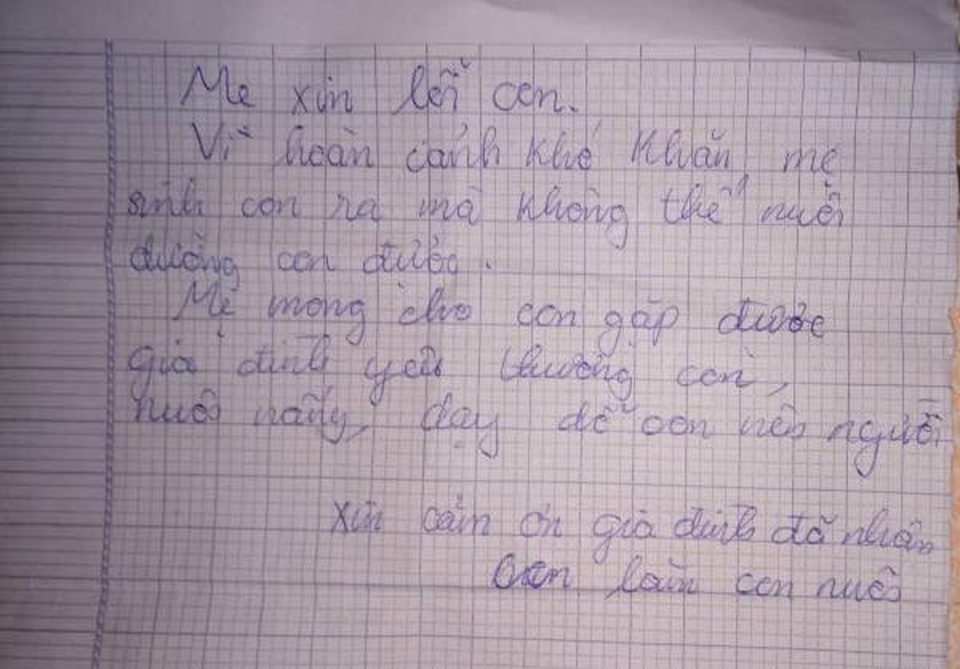 Mẹ xin lỗi con.
Vì hoàn cảnh khó khăn mẹ
sinh con ra mà không thể nuôi
dưỡng con được.
Mẹ mong cho con gặp được
gia đình yêu thương con,
nuôi nấng, dạy dỗ con nên người
Xin cảm ơn gia đình đã nhận
con làm con nuôi